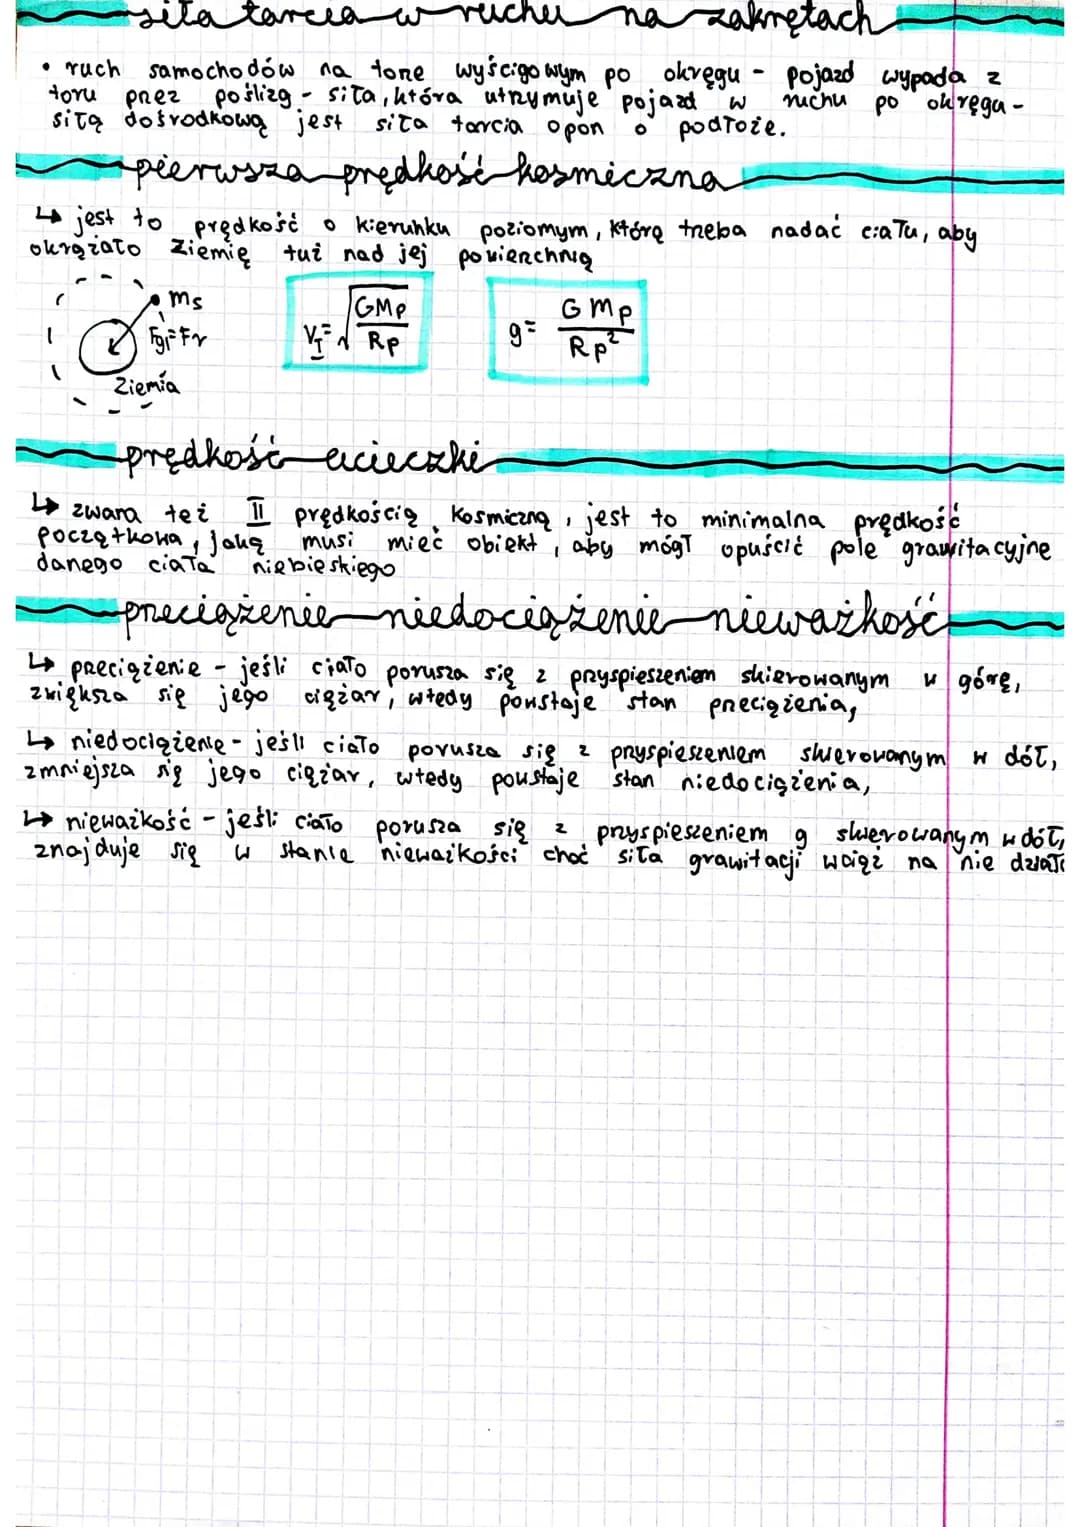 siła tarcia w ruchu na zakrętach
• ruch samochodów na torze wyścigowym po okręgu - pojazd wypada z
toru przez poślizg - siła, która utrzymuje pojazd w ruchu po okręgu -
siłą dośrodkową jest siła tarcia opon o podłoże.
pierwsza prędkość kosmiczna
↳ jest to prędkość o kierunku poziomym, którą trzeba nadać ciału, aby
okrążało Ziemię tuż nad jej powierzchnią
ms
Fg=Fr
Ziemia
V_I = √(GMp/Rp)
g = GMp/Rp²
prędkość ucieczki
↳ zwana też II prędkością kosmiczną, jest to minimalna prędkość
początkowa, jaką musi mieć obiekt, aby mógł opuścić pole grawitacyjne
danego ciała niebieskiego
przeciążenie niedociążenie nieważkość
↳ przeciążenie - jeśli ciało porusza się z przyspieszeniem skierowanym w górę,
zwiększa się jego ciężar, wtedy powstaje stan przeciążenia,
↳ niedociążenie - jeśli ciało porusza się z przyspieszeniem skierowanym w dół,
zmniejsza się jego ciężar, wtedy powstaje stan niedociążenia,
↳ nieważkość - jeśli ciało porusza się z przyspieszeniem g skierowanym w dół,
znajduje się w stanie nieważkości choć siła grawitacji wciąż na nie działa